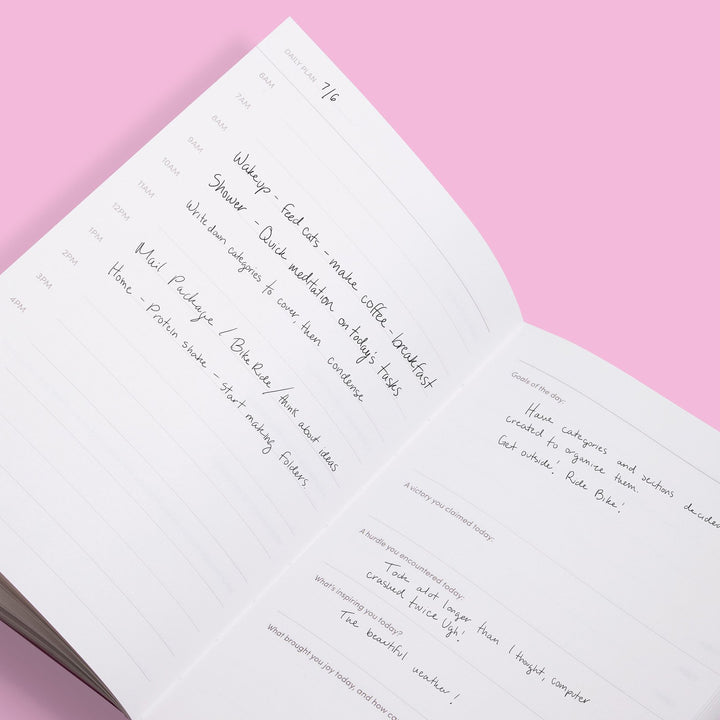 DAILY PLAN 7/6
6AM
7AM
8AM
9AM Wakeup - feed cats - make coffee - breakfast
10AM Shower - Quick meditation on today's tasks
11AM Write down categories to cover, then condense
12PM
1PM Mail Package / Bike Ride / think about ideas
2PM Home - Protein shake - start making folders.
3PM
4PM
Goals of the day:
Have categories and sections decided
created to organize them.
Get outside! Ride Bike!
A victory you claimed today:
A hurdle you encountered today:
Took alot longer than I thought, computer
crashed twice Ugh!
What's inspiring you today?
The beautiful weather!
What brought you joy today, and how